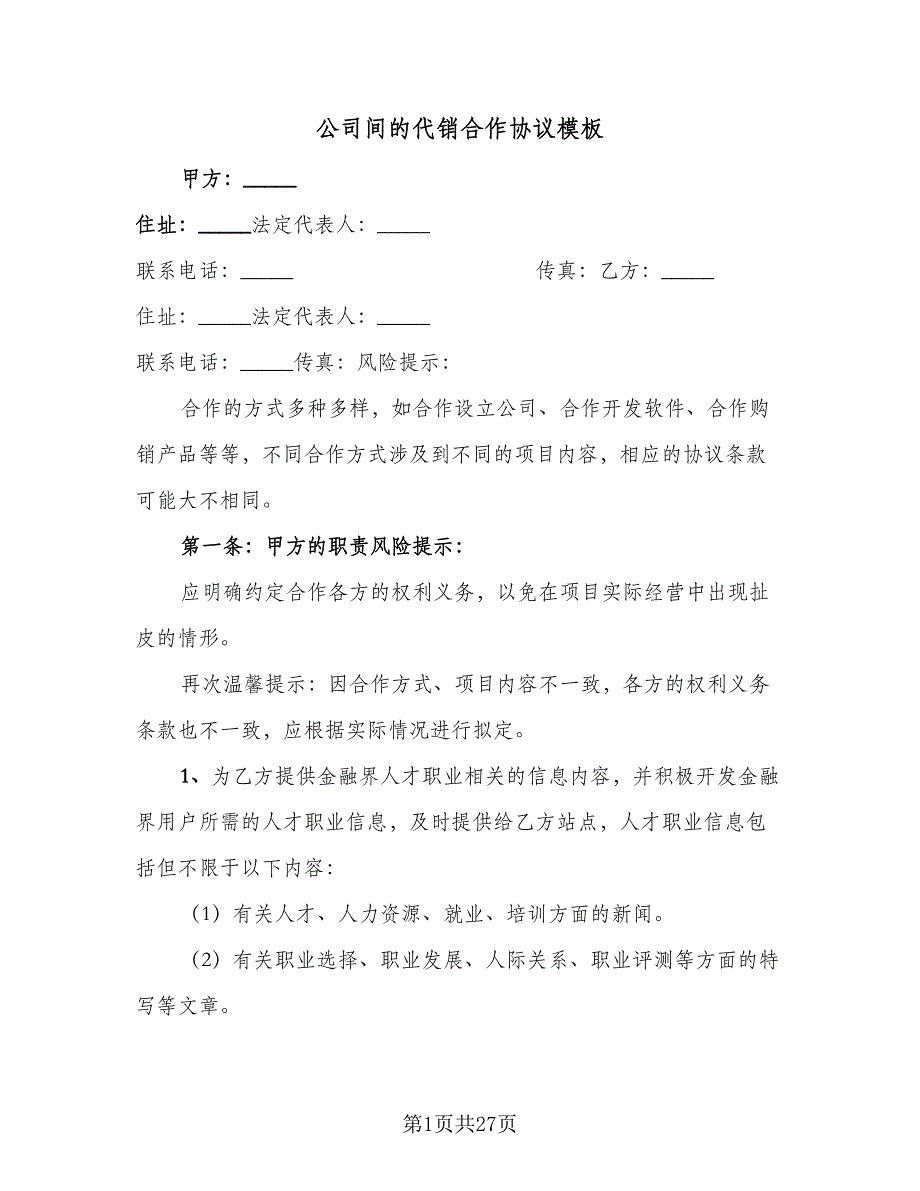 公司间的代销合作协议模板
甲方：_____
住址：_____法定代表人：_____
联系电话：_____ 传真：乙方：_____
住址：_____法定代表人：_____
联系电话：_____传真：风险提示：
合作的方式多种多样，如合作设立公司、合作开发软件、合作购
销产品等等，不同合作方式涉及到不同的项目内容，相应的协议条款
可能大不相同。
第一条：甲方的职责风险提示：
应明确约定合作各方的权利义务，以免在项目实际经营中出现扯
皮的情形。
再次温馨提示：因合作方式、项目内容不一致，各方的权利义务
条款也不一致，应根据实际情况进行拟定。
1、为乙方提供金融界人才职业相关的信息内容，并积极开发金融
界用户所需的人才职业信息，及时提供给乙方站点，人才职业信息包
括但不限于以下内容：
（1）有关人才、人力资源、就业、培训方面的新闻。
（2）有关职业选择、职业发展、人际关系、职业评测等方面的特
写等文章。
第1页共27页